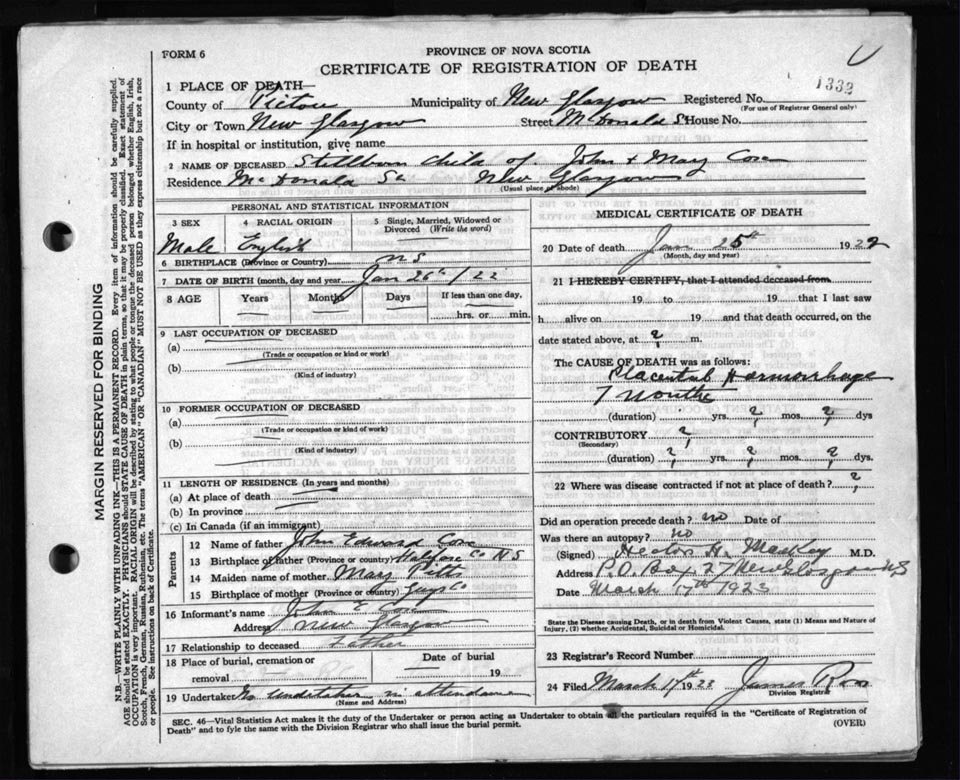 FORM 6
PROVINCE OF NOVA SCOTIA
CERTIFICATE OF REGISTRATION OF DEATH
1332
1 PLACE OF DEATH
County of Pictou Municipality of New Glasgow Registered No.
(For use of Registrar General only)
City or Town New Glasgow Street McDonald St House No.
If in hospital or institution, give name
2 NAME OF DECEASED Stillborn child of John + Mary Cox
Residence McDonald St New Glasgow
(Usual place of abode)
PERSONAL AND STATISTICAL INFORMATION
3 SEX 4 RACIAL ORIGIN 5 Single, Married, Widowed or Divorced (Write the word)
Male English
6 BIRTHPLACE (Province or Country) N S
7 DATE OF BIRTH (month, day and year) Jan 26th / 22
8 AGE Years Months Days If less than one day,
hrs. or min.
9 LAST OCCUPATION OF DECEASED
(a)
(Trade or occupation or kind or work)
(b)
(Kind of industry)
10 FORMER OCCUPATION OF DECEASED
(a)
(Trade or occupation or kind of work)
(b)
(Kind of industry)
11 LENGTH OF RESIDENCE (In years and months)
(a) At place of death
(b) In province
(c) In Canada (if an immigrant)
Parents
12 Name of father John Edward Cox
13 Birthplace of father (Province or country) Halifax Co N S
14 Maiden name of mother Mary Pitts
15 Birthplace of mother (Province or country) Guys Co
16 Informant's name John E Cox
Address New Glasgow
17 Relationship to deceased Father
18 Place of burial, cremation or removal Date of burial 19
19 Undertaker No Undertaker in attendance
(Name and Address)
MEDICAL CERTIFICATE OF DEATH
20 Date of death Jan 25th 1922
(Month, day and year)
21 I HEREBY CERTIFY, that I attended deceased from
19 to 19 that I last saw
h alive on 19 and that death occurred, on
date stated above, at ? m.
The CAUSE OF DEATH was as follows:
Placental Hemorrhage
7 months
(duration) yrs. ? mos. ? dys
CONTRIBUTORY ?
(Secondary)
(duration) ? yrs. ? mos. ? dys.
22 Where was disease contracted if not at place of death? ?
Did an operation precede death? no Date of
Was there an autopsy? no
(Signed) Hector H. MacKay M.D.
Address P.O. Box 27 New Glasgow NS
Date March 17th 1923
State the Disease causing Death, or in death from Violent Causes, state (1) Means and Nature of Injury, (2) whether Accidental, Suicidal or Homicidal.
23 Registrar's Record Number
24 Filed March 17th 1923 James Ross
Division Registrar
SEC. 46—Vital Statistics Act makes it the duty of the Undertaker or person acting as Undertaker to obtain all the particulars required in the "Certificate of Registration of
Death" and to fyle the same with the Division Registrar who shall issue the burial permit.
(OVER)
MARGIN RESERVED FOR BINDING
N.B.—WRITE PLAINLY WITH UNFADING INK—THIS IS A PERMANENT RECORD. Every item of information should be carefully supplied.
AGE should be stated EXACTLY. PHYSICIANS should STATE CAUSE OF DEATH in plain terms, so that it may be properly classified. Exact statement of
OCCUPATION is very important. RACIAL ORIGIN will be described by stating to what people or tongue the deceased person belonged whether English, Irish,
Scotch, French, German, Russian, Ruthenian, etc. The terms "AMERICAN" OR "CANADIAN" MUST NOT BE USED as they express citizenship but not a race
or people. See instructions on back of Certificate.